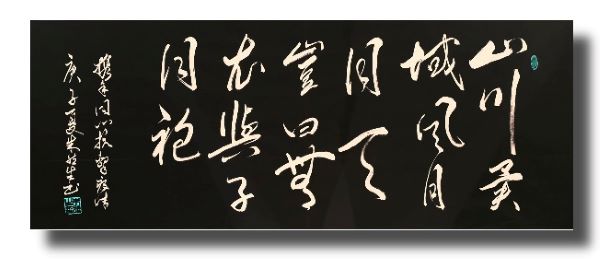 山川異
域风月
同天
豈曰無
衣與子
同袍
攜手同心抗擊疫情
庚子夏朱